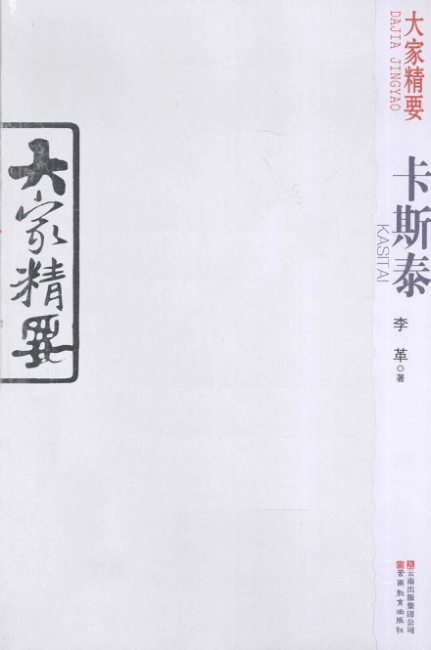 大家精要
DAJIA JINGYAO
卡斯泰
KASITAI
李革◎著
大家精要
云南出版集团公司
云南教育出版社